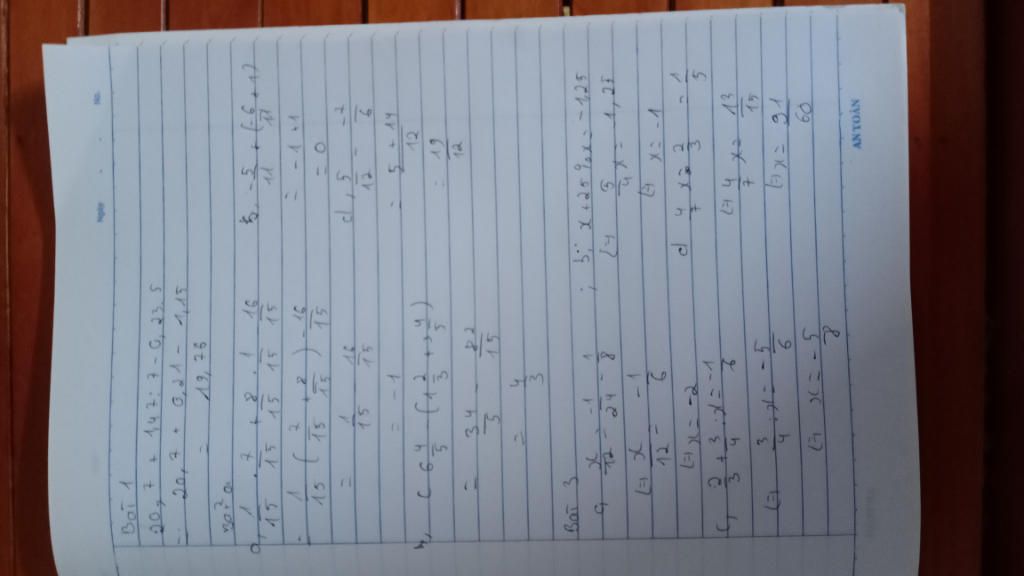 Ngày No.
Bài 1
20,7 + 1,47 : 7 - 0,23 . 5
= 20,7 + 0,21 - 1,15
= 19,76
Bài 2
a, 1/15 . 7/15 + 8/15 . 1/15 - 16/15
= 1/15 ( 7/15 + 8/15 ) - 16/15
= 1/15 - 16/15
= -1
b, -5/11 + (-6/11 + 1)
= -1 + 1
= 0
( 6 4/5 - (1 2/3 + 3 4/5)
= 34/5 - 82/15
= 4/3
d, 5/12 - -7/6
= 5 + 14/12
= 19/12
Bài 3
a, x/12 = -1/24 - 1/8
(=) x/12 = -1/6
(=) x = -2
b, x + 25% x = -1,25
(=) 5/4 x = -1,25
(=) x = -1
c, 2/3 + 3/4 : x = -1/6
(=) 3/4 : x = -5/6
(=) x = -5/8
d 4/7 x - 2/3 = 1/5
(=) 4/7 x = 13/15
(=) x = 91/60
AN TOÀN